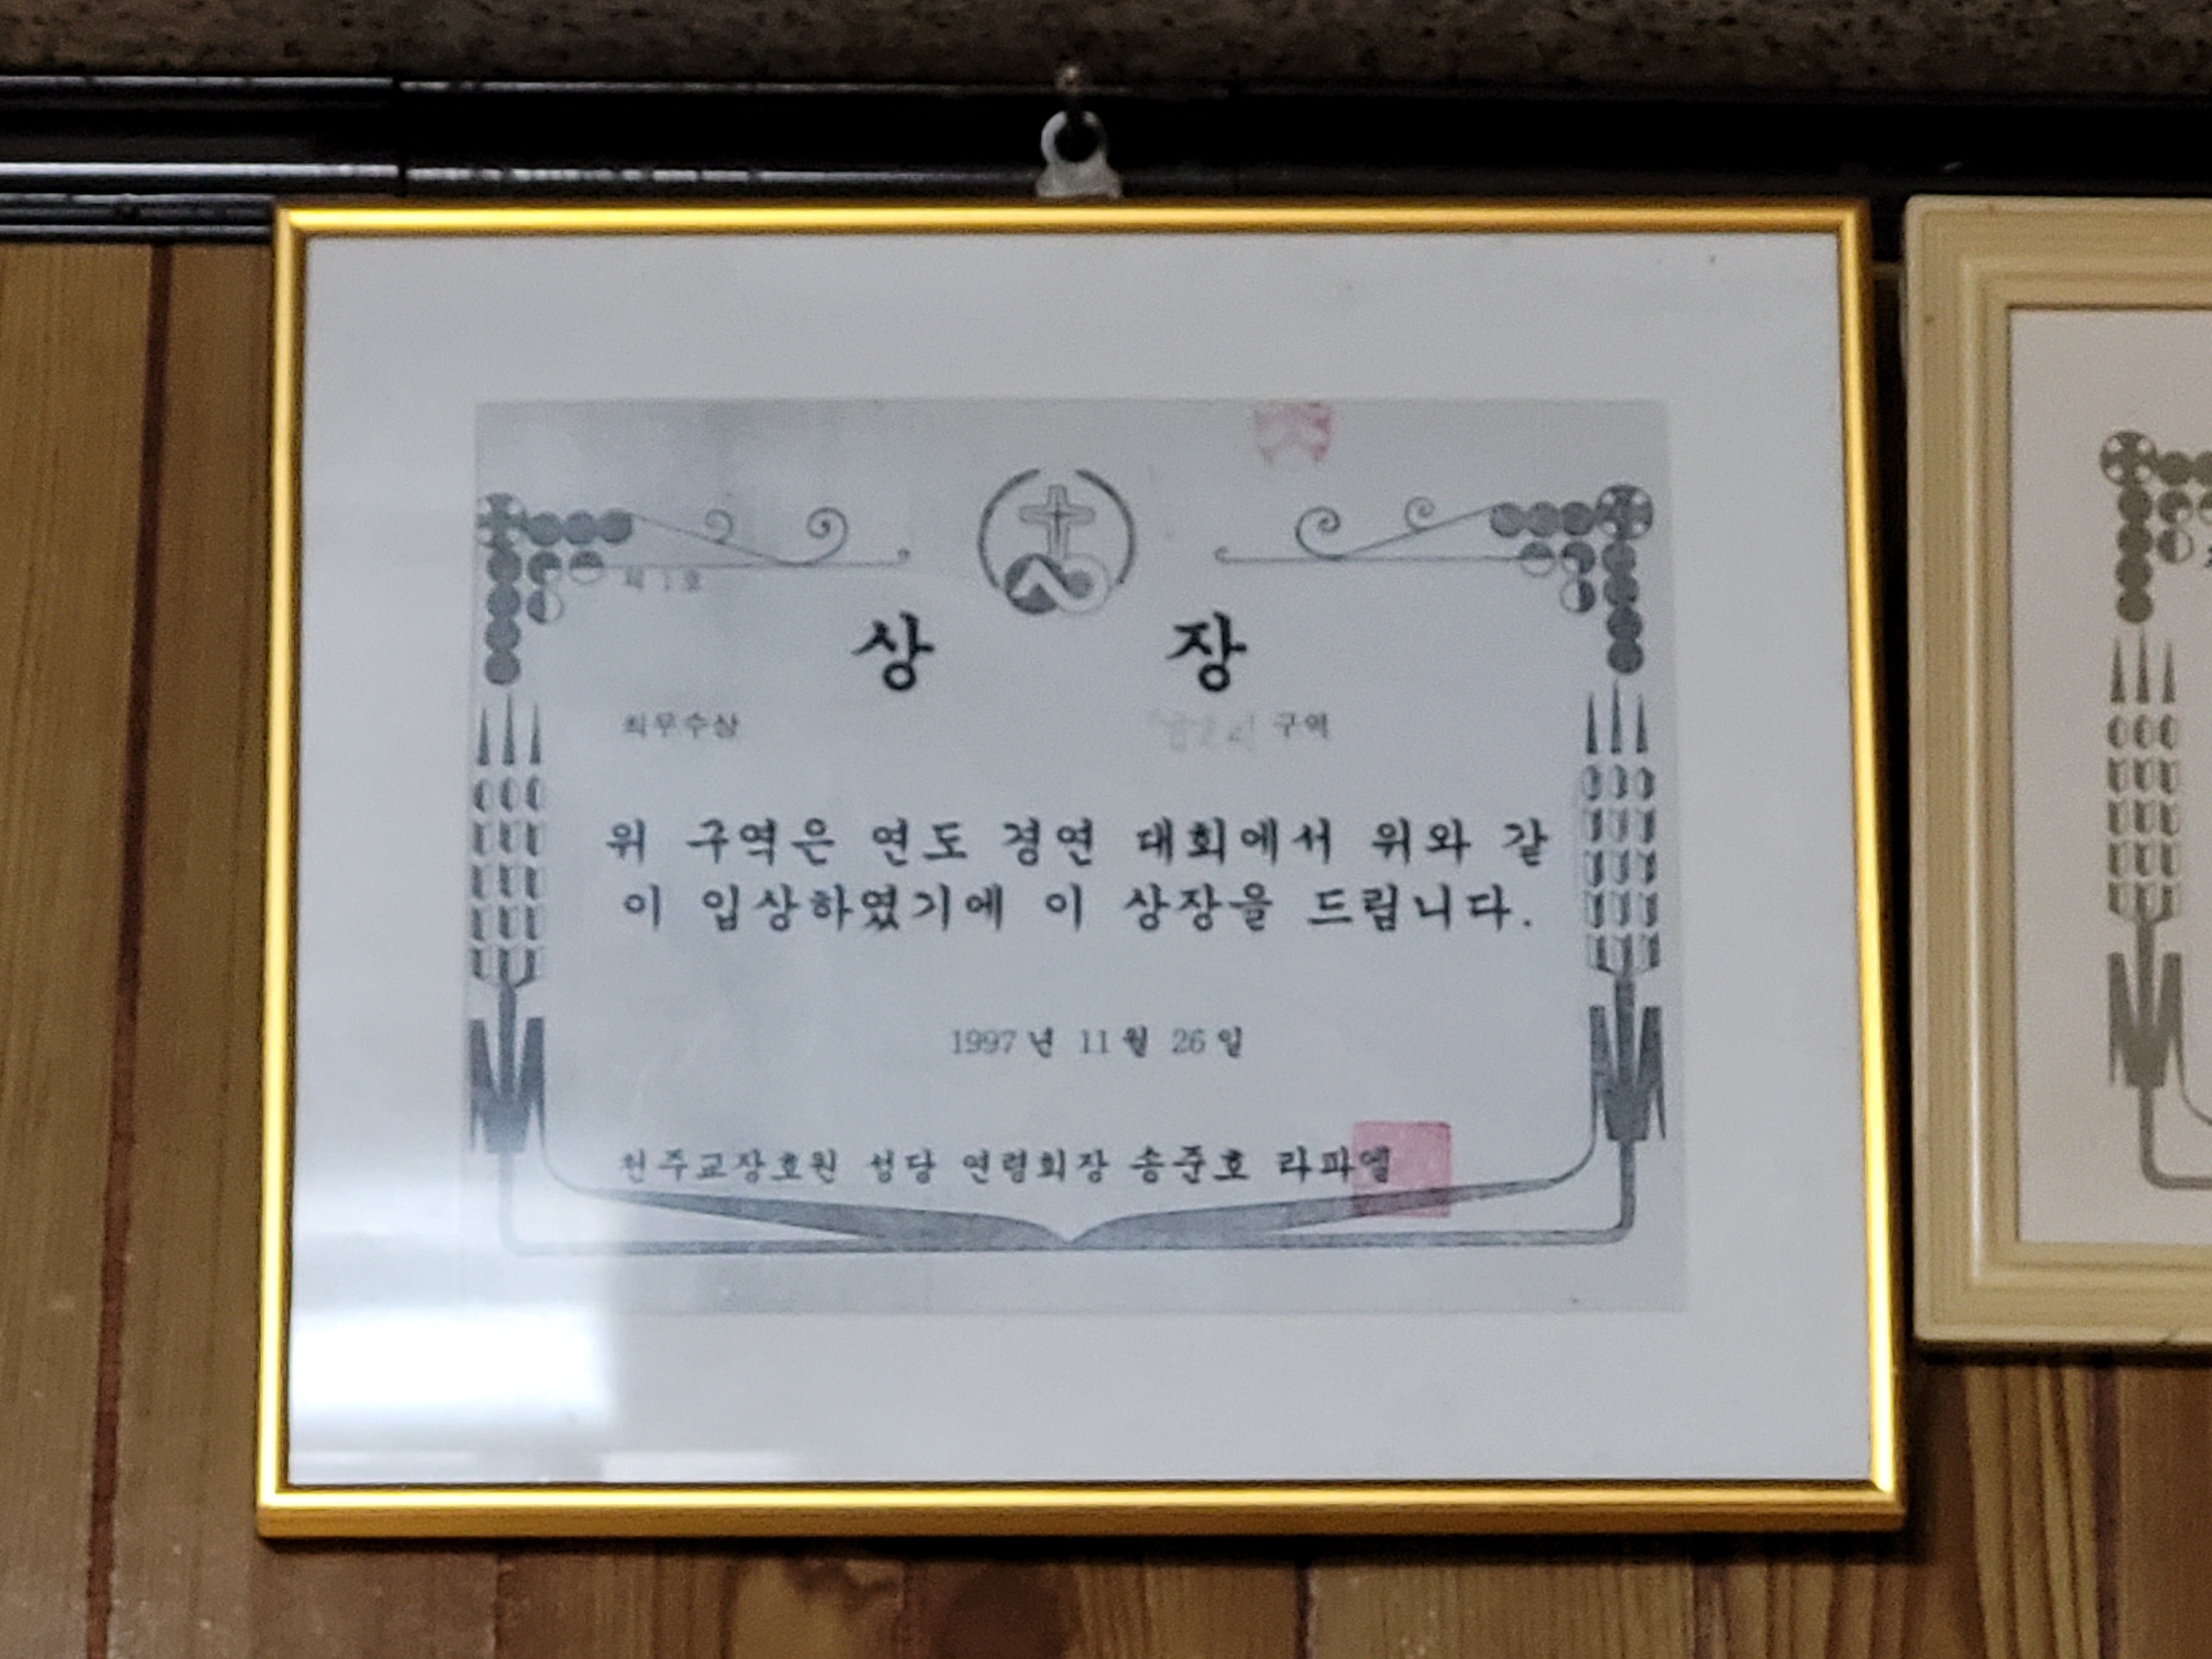 제 1 호
상 장
최우수상 구역
위 구역은 연도 경연 대회에서 위와 같
이 입상하였기에 이 상장을 드립니다.
1997 년 11 월 26 일
천주교장호원 성당 연령회장 송준호 라파엘